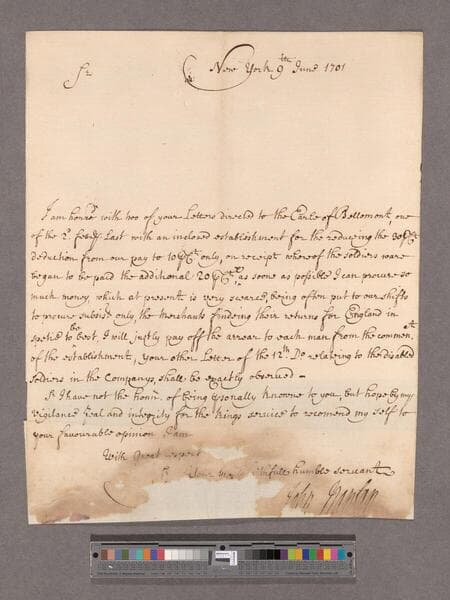 Sr
New York 9th June 1701
I am honrd with two of your Letters directed to the Earle of Bellomont, one
of the 2d febry Last with an inclosed establishment for the reduceing the 30 P Ct
Deduction from our pay to 10 P Ct only, on receipt whereof the soldiers were
began to be paid the additional 20 P Ct as soon as possible I can procure so
much money, which at present is very scarce, being often put to our shifts
to procure subsist only, the Merchants findeing their returns for England in
specie to be best, I will justly pay off the arrear to each man from the commen.mt
of the establishment, your other Letter of the 12th Do relateing to the disabled
Soldiers in the Companys, shall be exactly observed –
Sr I have not the honr. of being personally knowne to you, but hope by my
vigilance Zeal and integrity for the Kings service to recomend my self to
your favourable opinion I am
With Great respect
Sr Your faithfull humble servant
John Nanfan